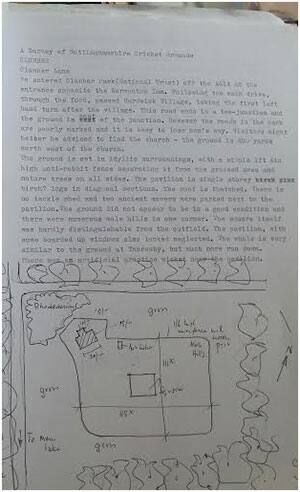 A Survey of Nottinghamshire Cricket Grounds
CLUMBER
Clumber Lane
We entered Clumber Park(National Trust) off the A614 at the
entrance opposite the Normanton Inn. Following the main drive,
through the ford, passed Hardwick Village, taking the first left
hand turn after the village. This road ends in a tee-junction and
the ground is west of the junction. However the roads in the park
are poorly marked and it is easy to lose one's way. Visitors might
better be advised to find the church - the ground is 400 yards
north west of the church.
The ground is set in idyllic surroundings, with a single 1ft 6in
high anti-rabbit fence separating it from the grassed area and
mature trees on all sides. The pavilion is single storey
birch? logs in diagonal sections. The roof is thatched. There is
no tackle shed and two ancient mowers were parked next to the
pavilion. The ground did not appear to be in a good condition and
there were numerous mole hills in one corner. The square itself
was barely distinguishable from the outfield. The pavilion, with
some boarded up windows also looked neglected. The whole is very
similar to the ground at Thoresby, but much more run down.
There was an artificial practice wicket near the pavilion.
Rhododendrons
grass
Mole
Hills
N
grass
To Main
lake
grass